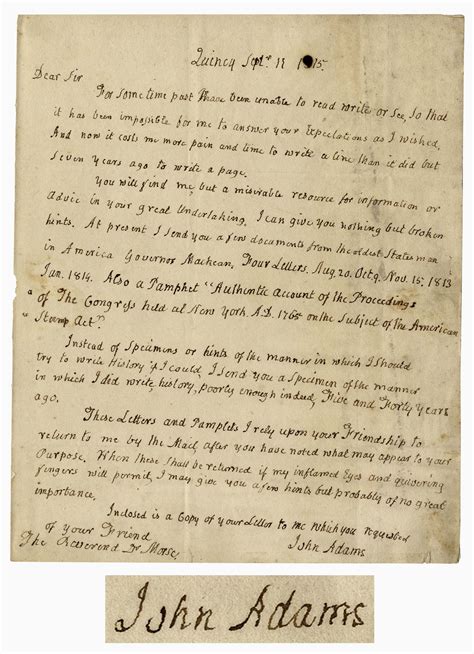 Quincy Septr 11 1815.
Dear Sir
For sometime past I have been unable to read write or See, so that
it has been impossible for me to answer your Expectations as I wished,
And now it costs me more pain and time to write a line than it did but
Seven years ago to write a page.
You will find me but a misirable resource for information or
Advice in your great Undertaking. I can give you nothing but broken
hints. At present I send you a few documents from the oldest Statesman
in America Governor Mackean. Four Letters. Aug. 20. Oct 9. Nov. 15. 1813
Jan. 1814. Also a Pamphet "Authentic Account of the Proceedings
of The Congress held at New York. A.D. 1765 on the Subject of the American
Stamp Act."
Instead of Specimens or hints of the manner in which I should
try to write History if I could, I send you a Specimen of the manner
in which I did write history, poorly enough indeed, Five and Forty years
ago.
These Letters and Pamplets I rely upon your Friendship to
return to me by the Mail, after you have noted what may appear to your
Purpose. When these shall be returned if my inflamed Eyes and quivering
fingers will permit, I may give you a few hints but probably of no great
importance.
Inclosed is a Copy of your Letter to me which you requested
of your Friend
John Adams
The Reverend Dr Morse.
John Adams